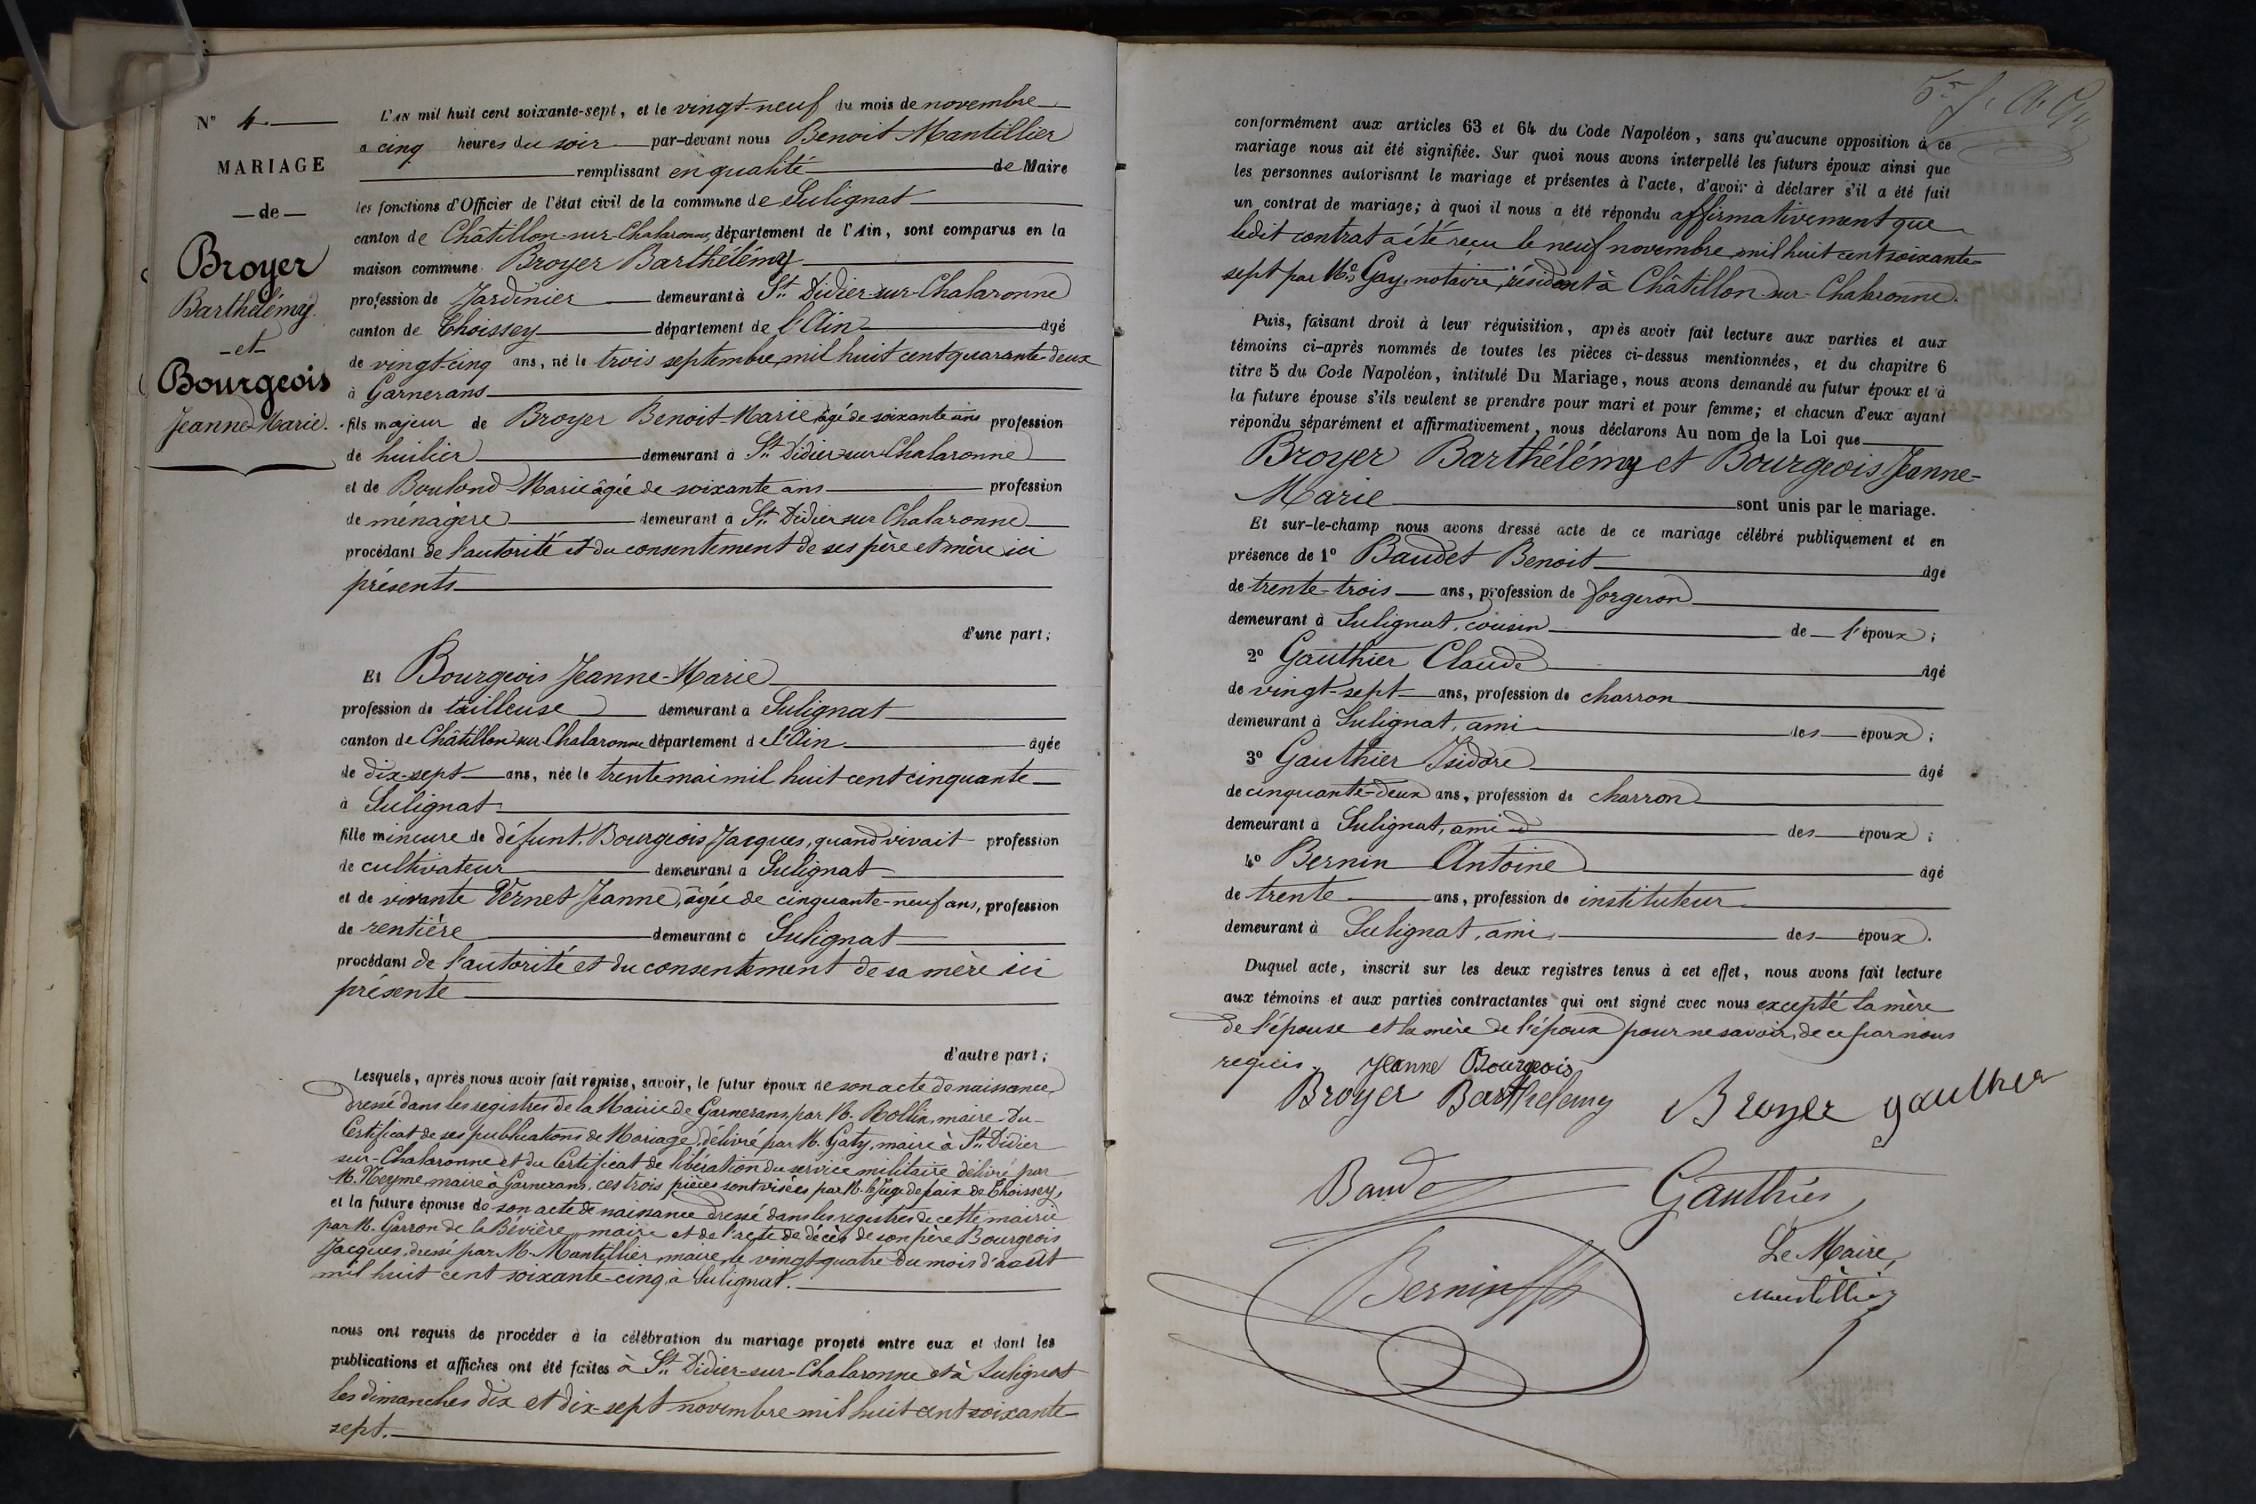 N° 4.
MARIAGE
de
Broyer
Barthélémy.
et
Bourgeois
Jeanne-Marie.
L'AN mil huit cent soixante-sept, et le vingt-neuf du mois de novembre
a cinq heures du soir par-devant nous Benoit Mantillier
remplissant en qualité de Maire
les fonctions d'Officier de l'état civil de la commune de Sulignat
canton de Châtillon-sur-Chalaronne, département de l'Ain, sont comparus en la
maison commune Broyer Barthélémy
profession de Jardinier demeurant à St. Didier-sur-Chalaronne
canton de Thoissey département de l'Ain âgé
de vingt-cinq ans, né le trois septembre mil huit cent quarante-deux
à Garnerans
fils majeur de Broyer Benoit-Marie âgé de soixante ans profession
de huilier demeurant à St. Didier-sur-Chalaronne
et de Boulond Marie âgée de soixante ans profession
de ménagère demeurant à St. Didier sur Chalaronne
procédant de l'autorité et du consentement de ses père et mère ici
présents
d'une part;
Et Bourgeois Jeanne-Marie
profession de tailleuse demeurant à Sulignat
canton de Châtillon-sur-Chalaronne département de l'Ain âgée
de dix-sept ans, née le trente mai mil huit cent cinquante
à Sulignat
fille mineure de défunt Bourgeois Jacques, quand vivait profession
de cultivateur demeurant à Sulignat
et de vivante Vernet Jeanne, âgée de cinquante-neuf ans, profession
de rentière demeurant à Sulignat
procédant de l'autorité et du consentement de sa mère ici
présente
d'autre part;
Lesquels, après nous avoir fait remise, savoir, le futur époux de son acte de naissance
dressé dans les registres de la Mairie de Garnerans, par M. Rollin, maire. Du
Certificat de ses publications de Mariage, délivré par M. Gaty, maire à St. Didier
sur-Chalaronne et du Certificat de libération du service militaire délivré par
M. Neyme maire à Garnerans, ces trois pièces sont visées par M. le Juge de paix de Thoissey,
et la future épouse de son acte de naissance dressé dans les registres de cette mairie
par M. Garron de la Bévière, maire et de l'acte de décès de son père Bourgeois
Jacques, dressé par M. Mantillier, maire, le vingt-quatre du mois d'août
mil huit cent soixante-cinq, à Sulignat.
nous ont requis de procéder à la célébration du mariage projeté entre eux et dont les
publications et affiches ont été faites à St. Didier-sur-Chalaronne et à Sulignat
les dimanches dix et dix-sept novembre mil huit cent soixante
sept.
conformément aux articles 63 et 64 du Code Napoléon, sans qu'aucune opposition à ce
mariage nous ait été signifiée. Sur quoi nous avons interpellé les futurs époux ainsi que
les personnes autorisant le mariage et présentes à l'acte, d'avoir à déclarer s'il a été fait
un contrat de mariage; à quoi il nous a été répondu affirmativement que
ledit contrat a été reçu le neuf novembre mil huit cent soixante
sept par Me. Gay, notaire, résidant à Châtillon-sur-Chalaronne.
Puis, faisant droit à leur réquisition, après avoir fait lecture aux parties et aux
témoins ci-après nommés de toutes les pièces ci-dessus mentionnées, et du chapitre 6
titre 5 du Code Napoléon, intitulé Du Mariage, nous avons demandé au futur époux et à
la future épouse s'ils veulent se prendre pour mari et pour femme; et chacun d'eux ayant
répondu séparément et affirmativement, nous déclarons Au nom de la Loi que
Broyer Barthélémy et Bourgeois Jeanne-
Marie sont unis par le mariage.
Et sur-le-champ nous avons dressé acte de ce mariage célébré publiquement et en
présence de 1° Baudet Benoit âgé
de trente-trois ans, profession de forgeron
demeurant à Sulignat, cousin de l'époux;
2° Gauthier Claude âgé
de vingt-sept ans, profession de charron
demeurant à Sulignat, ami des époux;
3° Gauthier Isidore âgé
de cinquante-deux ans, profession de charron
demeurant à Sulignat, ami des époux;
4° Bernin Antoine âgé
de trente ans, profession de instituteur
demeurant à Sulignat, ami des époux.
Duquel acte, inscrit sur les deux registres tenus à cet effet, nous avons fait lecture
aux témoins et aux parties contractantes qui ont signé avec nous excepté la mère
de l'épouse et la mère de l'époux pour ne savoir, de ce par nous
requis. Jeanne Bourgeois
Broyer Barthelemy Broyer gauthier
Baudet Gauthier
Bernin Le Maire,
Mantillier